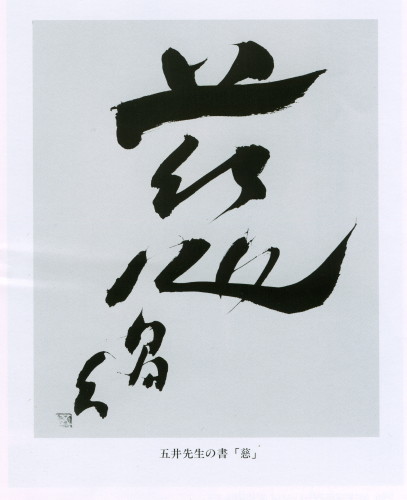 慈
昌久
五井先生の書「慈」